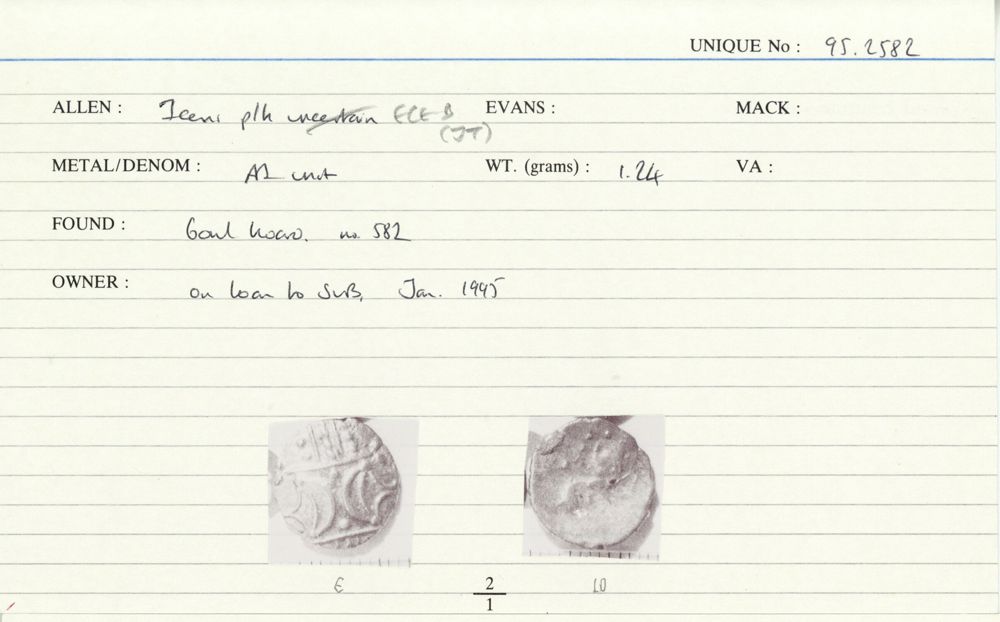 UNIQUE No : 95.2582
ALLEN : Iceni plh uncertain ECE B EVANS : MACK :
(JT)
METAL/DENOM : AR unit WT. (grams) : 1.24 VA :
FOUND : hoard. no. 582
OWNER : on loan to SUB, Jan. 1995
2
1